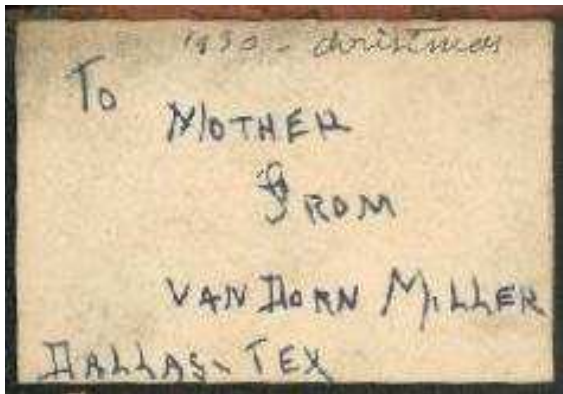 1930 - Christmas
To
MOTHER
FROM
VAN DORN MILLER
DALLAS, TEX